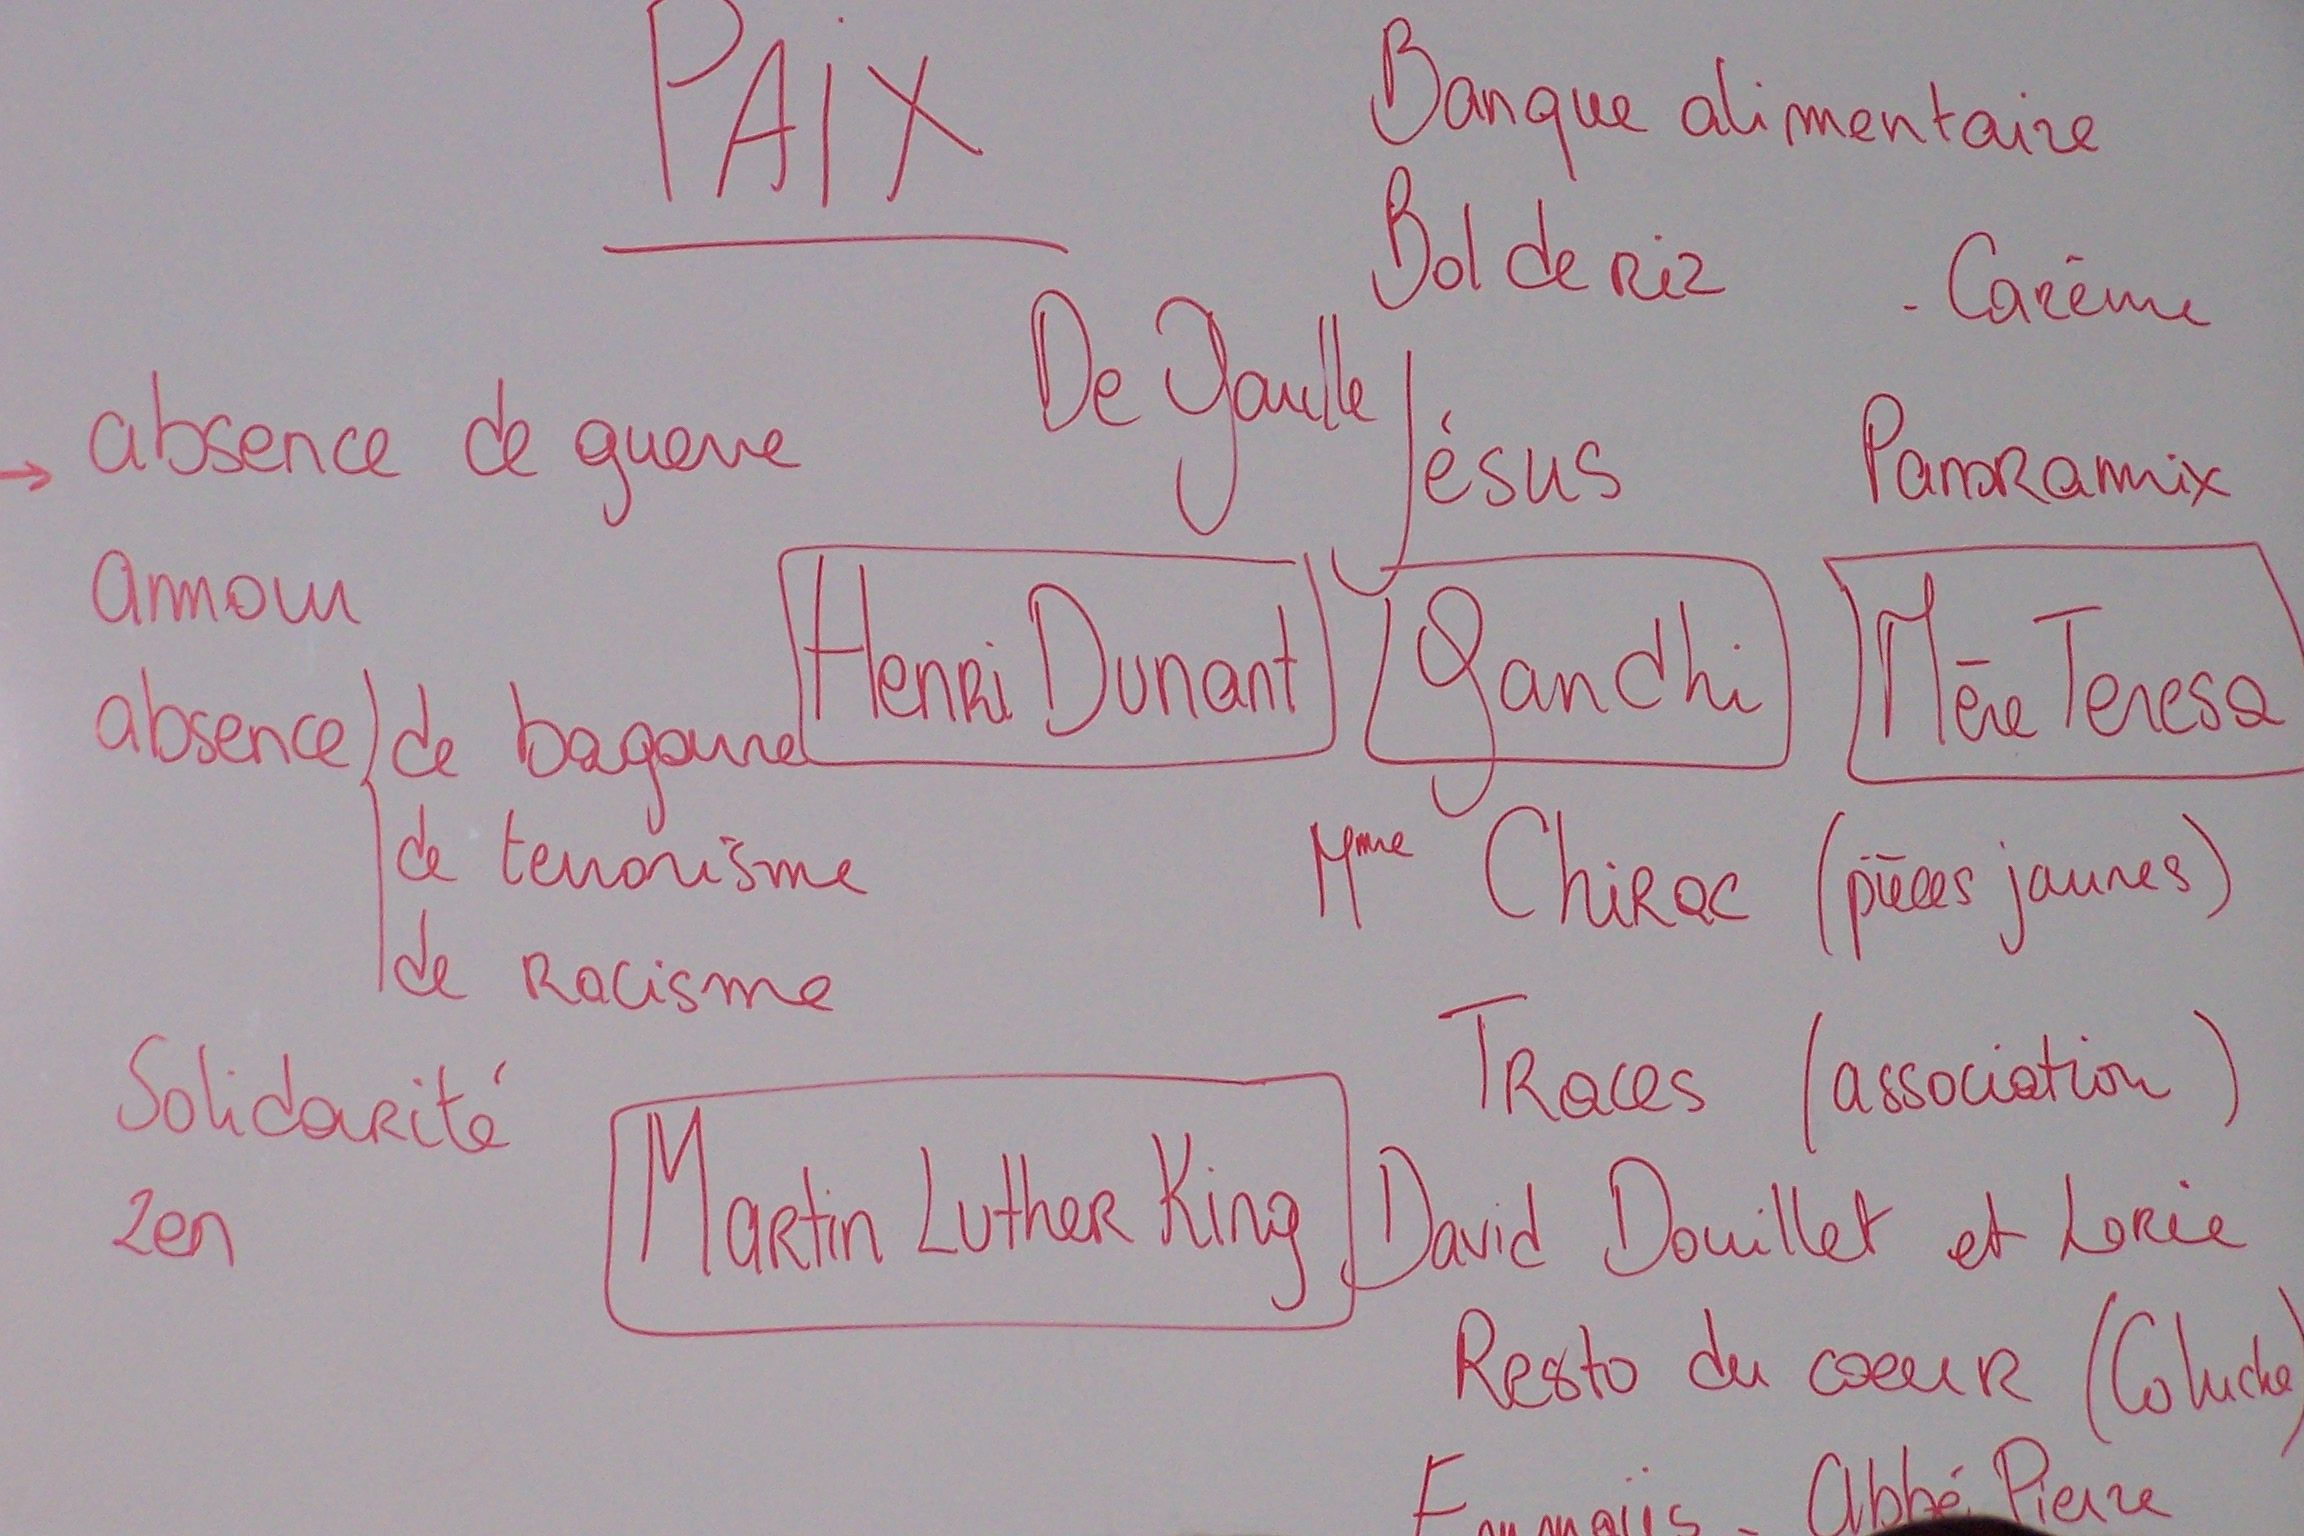 PAIX
Banque alimentaire
Bol de Riz - Carême
De Gaulle
Jésus
Panoramix
→ absence de guerre
amour
absence de bagarre
de terrorisme
de racisme
Solidarité
zen
Henri Dunant
Gandhi
Mère Teresa
Mme Chirac (pièces jaunes)
Traces (association)
Martin Luther King
David Douillet et Lorie
Resto du coeur (Coluche)
Emmaüs - Abbé Pierre